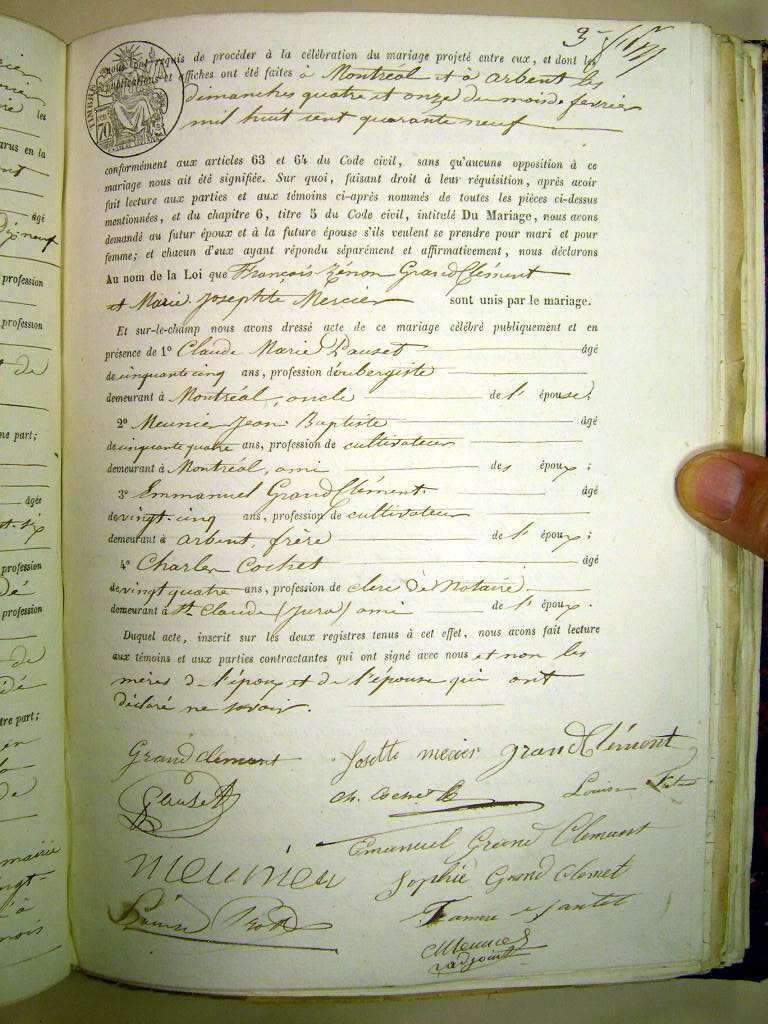 nous ont requis de procéder à la célébration du mariage projeté entre eux, et dont les
publications et affiches ont été faites à Montréal et à arbent les
dimanches quatre et onze du mois de fevrier
mil huit cent quarante neuf
TIMBRE
70
conformément aux articles 63 et 64 du Code civil, sans qu'aucune opposition à ce
mariage nous ait été signifiée. Sur quoi, faisant droit à leur réquisition, après avoir
fait lecture aux parties et aux témoins ci-après nommés de toutes les pièces ci-dessus
mentionnées, et du chapitre 6, titre 5 du Code civil, intitulé Du Mariage, nous avons
demandé au futur époux et à la future épouse s'ils veulent se prendre pour mari et pour
femme; et chacun d'eux ayant répondu séparément et affirmativement, nous déclarons
Au nom de la Loi que François Zénon GrandClément
et Marie Josephte Mercier sont unis par le mariage.
Et sur-le-champ nous avons dressé acte de ce mariage célébré publiquement et en
présence de 1° Claude Marie Pauset âgé
de cinquante cinq ans, profession d'aubergiste
demeurant à Montréal, oncle de l' épouse;
2° Meunier Jean Baptiste âgé
de cinquante quatre ans, profession de cultivateur
demeurant à Montréal, ami des époux;
3° Emmanuel GrandClément. âgé
de vingt cinq ans, profession de cultivateur
demeurant à arbent frère de l' époux;
4° Charles Cochet âgé
de vingt quatre ans, profession de clerc de Notaire
demeurant à St. Claude (Jura) ami de l' époux.
Duquel acte, inscrit sur les deux registres tenus à cet effet, nous avons fait lecture
aux témoins et aux parties contractantes qui ont signé avec nous et non les
mères de l'époux et de l'épouse qui ont
déclaré ne savoir.
Grandclément Josette mecier grandClément
Pauset Ch. Cochet Louise
Emanuel Grand Clement
meunier Sophie Grand Clemet
Louise
Meunier
adjoint